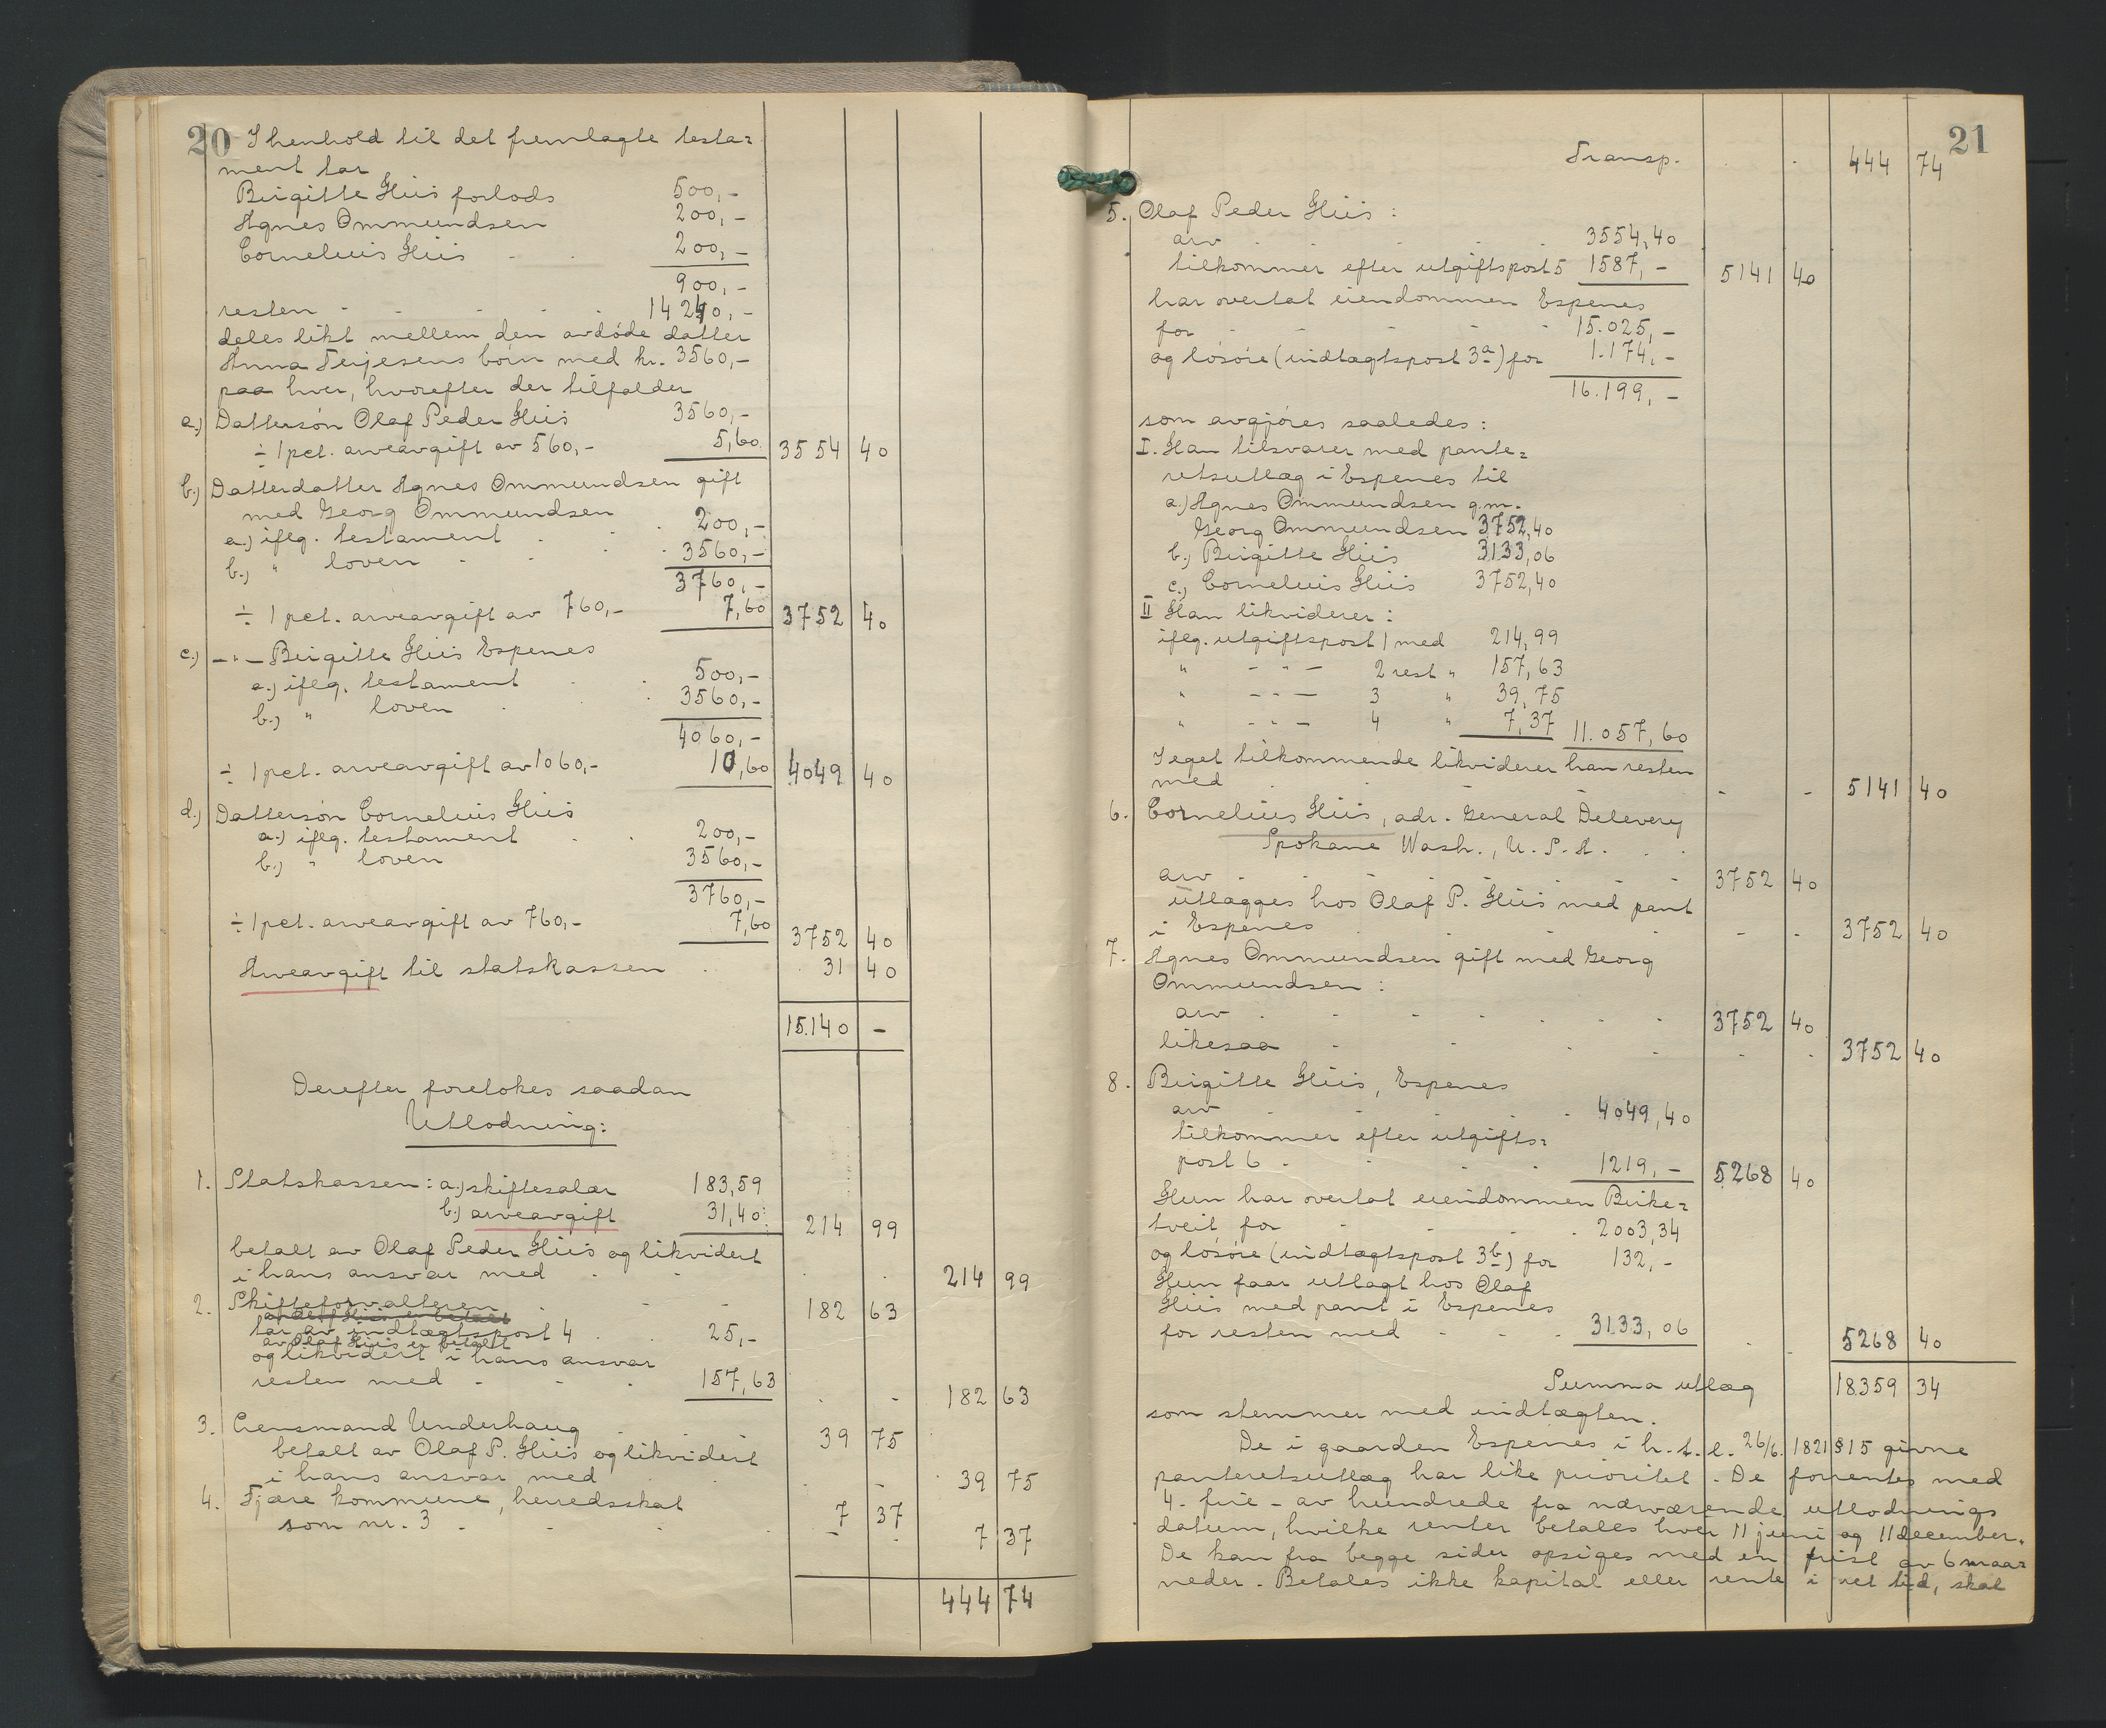 20
I henhold til det fremlagte testa=
ment tar
Birgitte Hiis forlods 500,-
Agnes Ommundsen 200,-
Cornelius Hiis 200,-
900,-
resten 14240,-
deles likt mellem den avdøde datter
Anna Terjesens børn med kr. 3560,-
paa hver, hvorefter der tilfalder
a.) Dattersøn Olaf Peder Hiis 3560,-
÷ 1 pct. arveavgift av 560,- 5,60 3554 40
b.) Datterdatter Agnes Ommundsen gift
med Georg Ommundsen
a.) iflg. testament 200,-
b.) " loven 3560,-
3760,-
÷ 1 pct. arveavgift av 760,- 7,60 3752 40
c.) -"- Birgitte Hiis Espenes
a.) iflg. testament 500,-
b.) " loven 3560,-
4060,-
÷ 1 pct. arveavgift av 1060,- 10,60 4049 40
d.) Dattersøn Cornelius Hiis
a.) iflg. testament 200,-
b.) " loven 3560,-
3760,-
÷ 1 pct. arveavgift av 760,- 7,60 3752 40
Arveavgift til statskassen 31 40
15.140 -
Derefter foretokes saadan
Utlodning:
1. Statskassen: a.) skiftesalær 183,59
b.) arveavgift 31,40 214 99
betalt av Olaf Peder Hiis og likvidert
i hans ansvar med 214 99
2. Skifteforvalteren 182 63
tar av indtægtspost 4 25,-
av Olaf Hiis er betalt
og likvidert i hans ansvar
resten med 157,63 182 63
3. Lensmand Underhaug 39 75
betalt av Olaf P. Hiis og likvidert
i hans ansvar med 39 75
4. Fjære kommune, herredsskat 7 37
som nr. 3 7 37
444 74
21
Transp. 444 74
5. Olaf Peder Hiis:
arv 3554,40
tilkommer efter utgiftspost 5 1587,- 5141 40
har overtat eiendommen Espenes
for 15.025,-
og løsøre (indtægtspost 3a) for 1.174,-
16.199,-
som avgjøres saaledes:
I. Han tilsvarer med pante=
retsutlæg i Espenes til
a.) Agnes Ommundsen g.m.
Georg Ommundsen 3752,40
b.) Birgitte Hiis 3133,06
c.) Cornelius Hiis 3752,40
II Han likviderer:
iflg. utgiftspost 1 med 214,99
" -"- 2 rest " 157,63
" -"- 3 " 39,75
" -"- 4 " 7,37 11.057,60
I eget tilkommende likviderer han resten
med 5141 40
6. Cornelius Hiis, adr. General Delevery
Spokane Wash., U.S.A.
arv 3752 40
utlægges hos Olaf P. Hiis med pant
i Espenes 3752 40
7. Agnes Ommundsen gift med Georg
Ommundsen:
arv 3752 40
likesaa 3752 40
8. Birgitte Hiis, Espenes
arv 4049,40
tilkommer efter utgifts=
post 6 1219,- 5268 40
Hun har overtat eiendommen Birke=
tveit for 2003,34
og løsøre (indtægtspost 3b) for 132,-
Hun faar utlagt hos Olaf
Hiis med pant i Espenes
for resten med 3133,06 5268 40
Summa utlæg 18359 34
som stemmer med indtægten.
De i gaarden Espenes i h. t. l. 26/6. 1821 § 15 givne
panteretsutlæg har like prioritet. De forrentes med
4 - fire - av hundrede fra nærværende utlodnings
datum, hvilke renter betales hver 11 juni og 11 december.
De kan fra begge sider opsiges med en frist av 6 maa=
neder. Betales ikke kapital eller rente i ret tid, skal